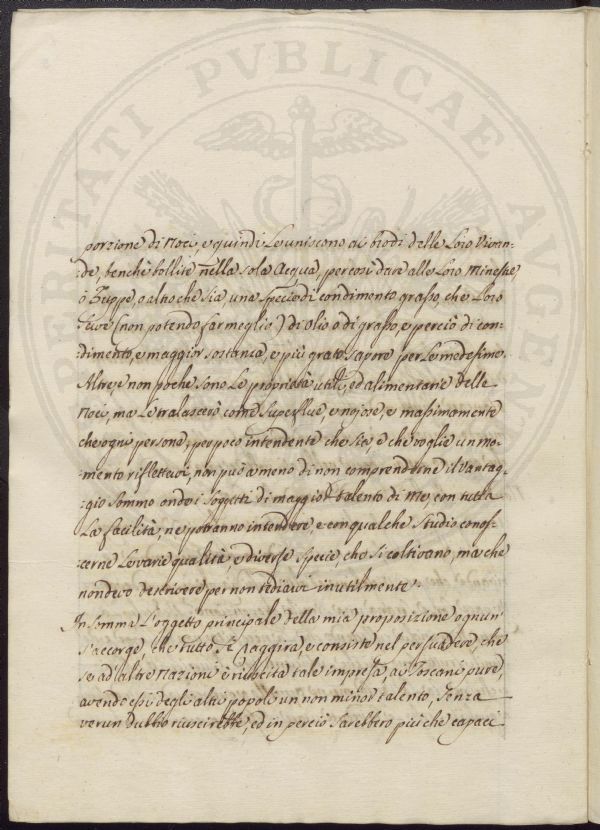 PERITATI PVBLICAE AVGE
porzione di Noci, e quindi Le uniscono ai brodi delle Loro Vivan-
:de, benchè bollite nella sola Acqua, per così dare alle Loro Minestre,
ò Zuppe, o altro che sia, una Specie di condimento grasso, che Loro
serve (non potendo far meglio) di olio o di grasso, e perciò di con-
:dimento, e maggior sostanza, e più grato sapore per Le medesime.
Altre, e non poche sono Le proprietà utili, ed alimentarie delle
Noci, ma Le tralascerò come Superflue, e nojose, e massimamente
che ogni persona, per poco intendente che sia, e che voglia un mo-
:mento rifletterci, non può a meno di non comprenderne il Vantag-
:gio sommo onde i Soggetti di maggior talento di Me, con tutta
La facilità, ne potranno intendere, e con qualche Studio conos-
:cerne Le varie qualità e diverse Specie, che si coltivano, ma che
non devo descrivere per non tediarvi inutilmente.
In somma L'oggetto principale della mia proposizione ognun
s'accorge, che tutto si raggira, e consiste nel persuadere, che
se ad altre Nazioni è riuscita tale impresa, ai Toscani pure,
avendo essi degli altri popoli un non minor talento, Senza
verun dubbio riuscirebbe, ed in perciò Sarebbero più che capaci